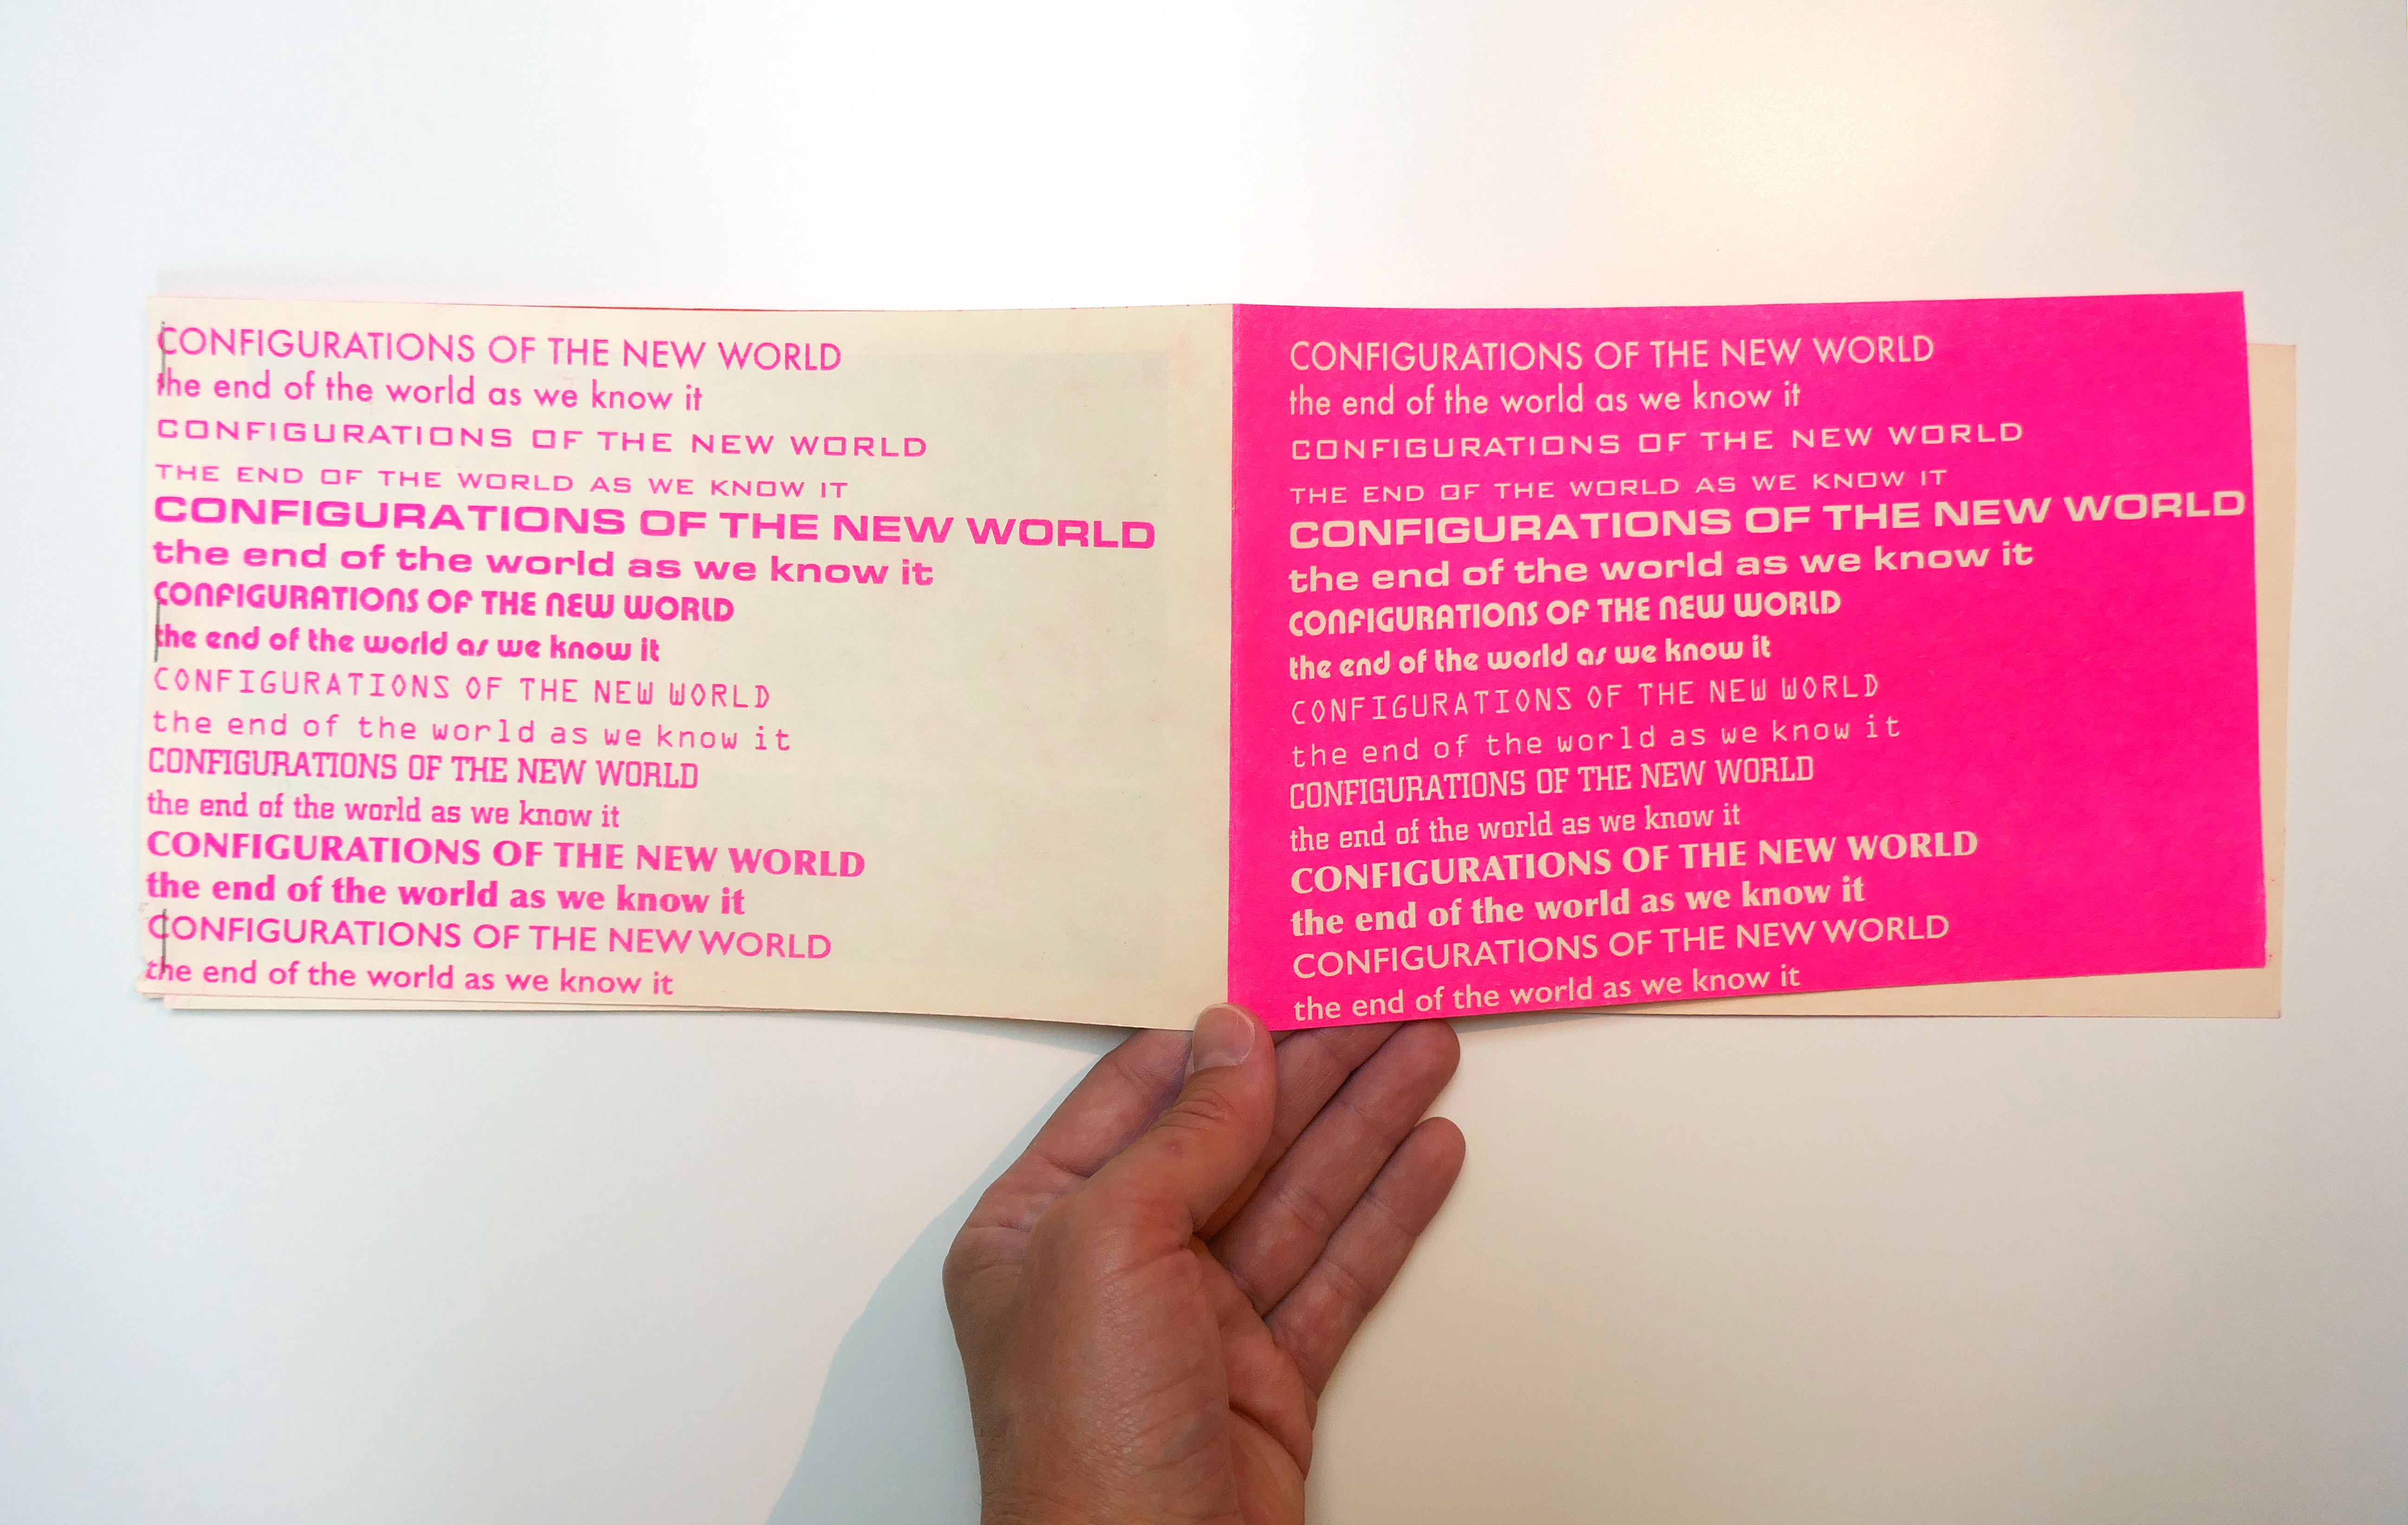 CONFIGURATIONS OF THE NEW WORLD
the end of the world as we know it
CONFIGURATIONS OF THE NEW WORLD
THE END OF THE WORLD AS WE KNOW IT
CONFIGURATIONS OF THE NEW WORLD
the end of the world as we know it
CONFIGURATIONS OF THE NEW WORLD
the end of the world as we know it
CONFIGURATIONS OF THE NEW WORLD
the end of the world as we know it
CONFIGURATIONS OF THE NEW WORLD
the end of the world as we know it
CONFIGURATIONS OF THE NEW WORLD
the end of the world as we know it
CONFIGURATIONS OF THE NEW WORLD
the end of the world as we know it
CONFIGURATIONS OF THE NEW WORLD
the end of the world as we know it
CONFIGURATIONS OF THE NEW WORLD
THE END OF THE WORLD AS WE KNOW IT
CONFIGURATIONS OF THE NEW WORLD
the end of the world as we know it
CONFIGURATIONS OF THE NEW WORLD
the end of the world as we know it
CONFIGURATIONS OF THE NEW WORLD
the end of the world as we know it
CONFIGURATIONS OF THE NEW WORLD
the end of the world as we know it
CONFIGURATIONS OF THE NEW WORLD
the end of the world as we know it
CONFIGURATIONS OF THE NEW WORLD
the end of the world as we know it